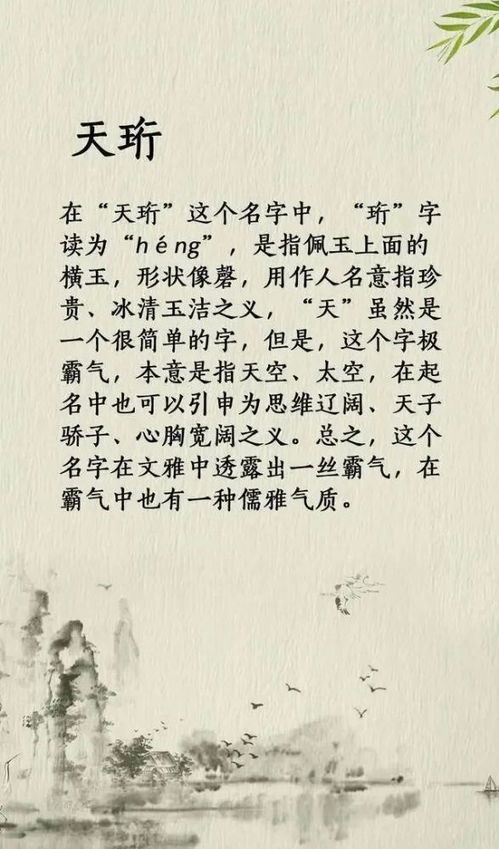 天珩
在“天珩”这个名字中，“珩”字
读为“héng”，是指佩玉上面的
横玉，形状像磬，用作人名意指珍
贵、冰清玉洁之义，“天”虽然是
一个很简单的字，但是，这个字极
霸气，本意是指天空、太空，在起
名中也可以引申为思维辽阔、天子
骄子、心胸宽阔之义。总之，这个
名字在文雅中透露出一丝霸气，在
霸气中也有一种儒雅气质。